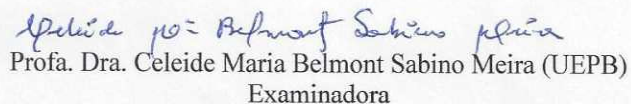 Celeide Mª Belmont Sabino Meira
Profa. Dra. Celeide Maria Belmont Sabino Meira (UEPB)
Examinadora